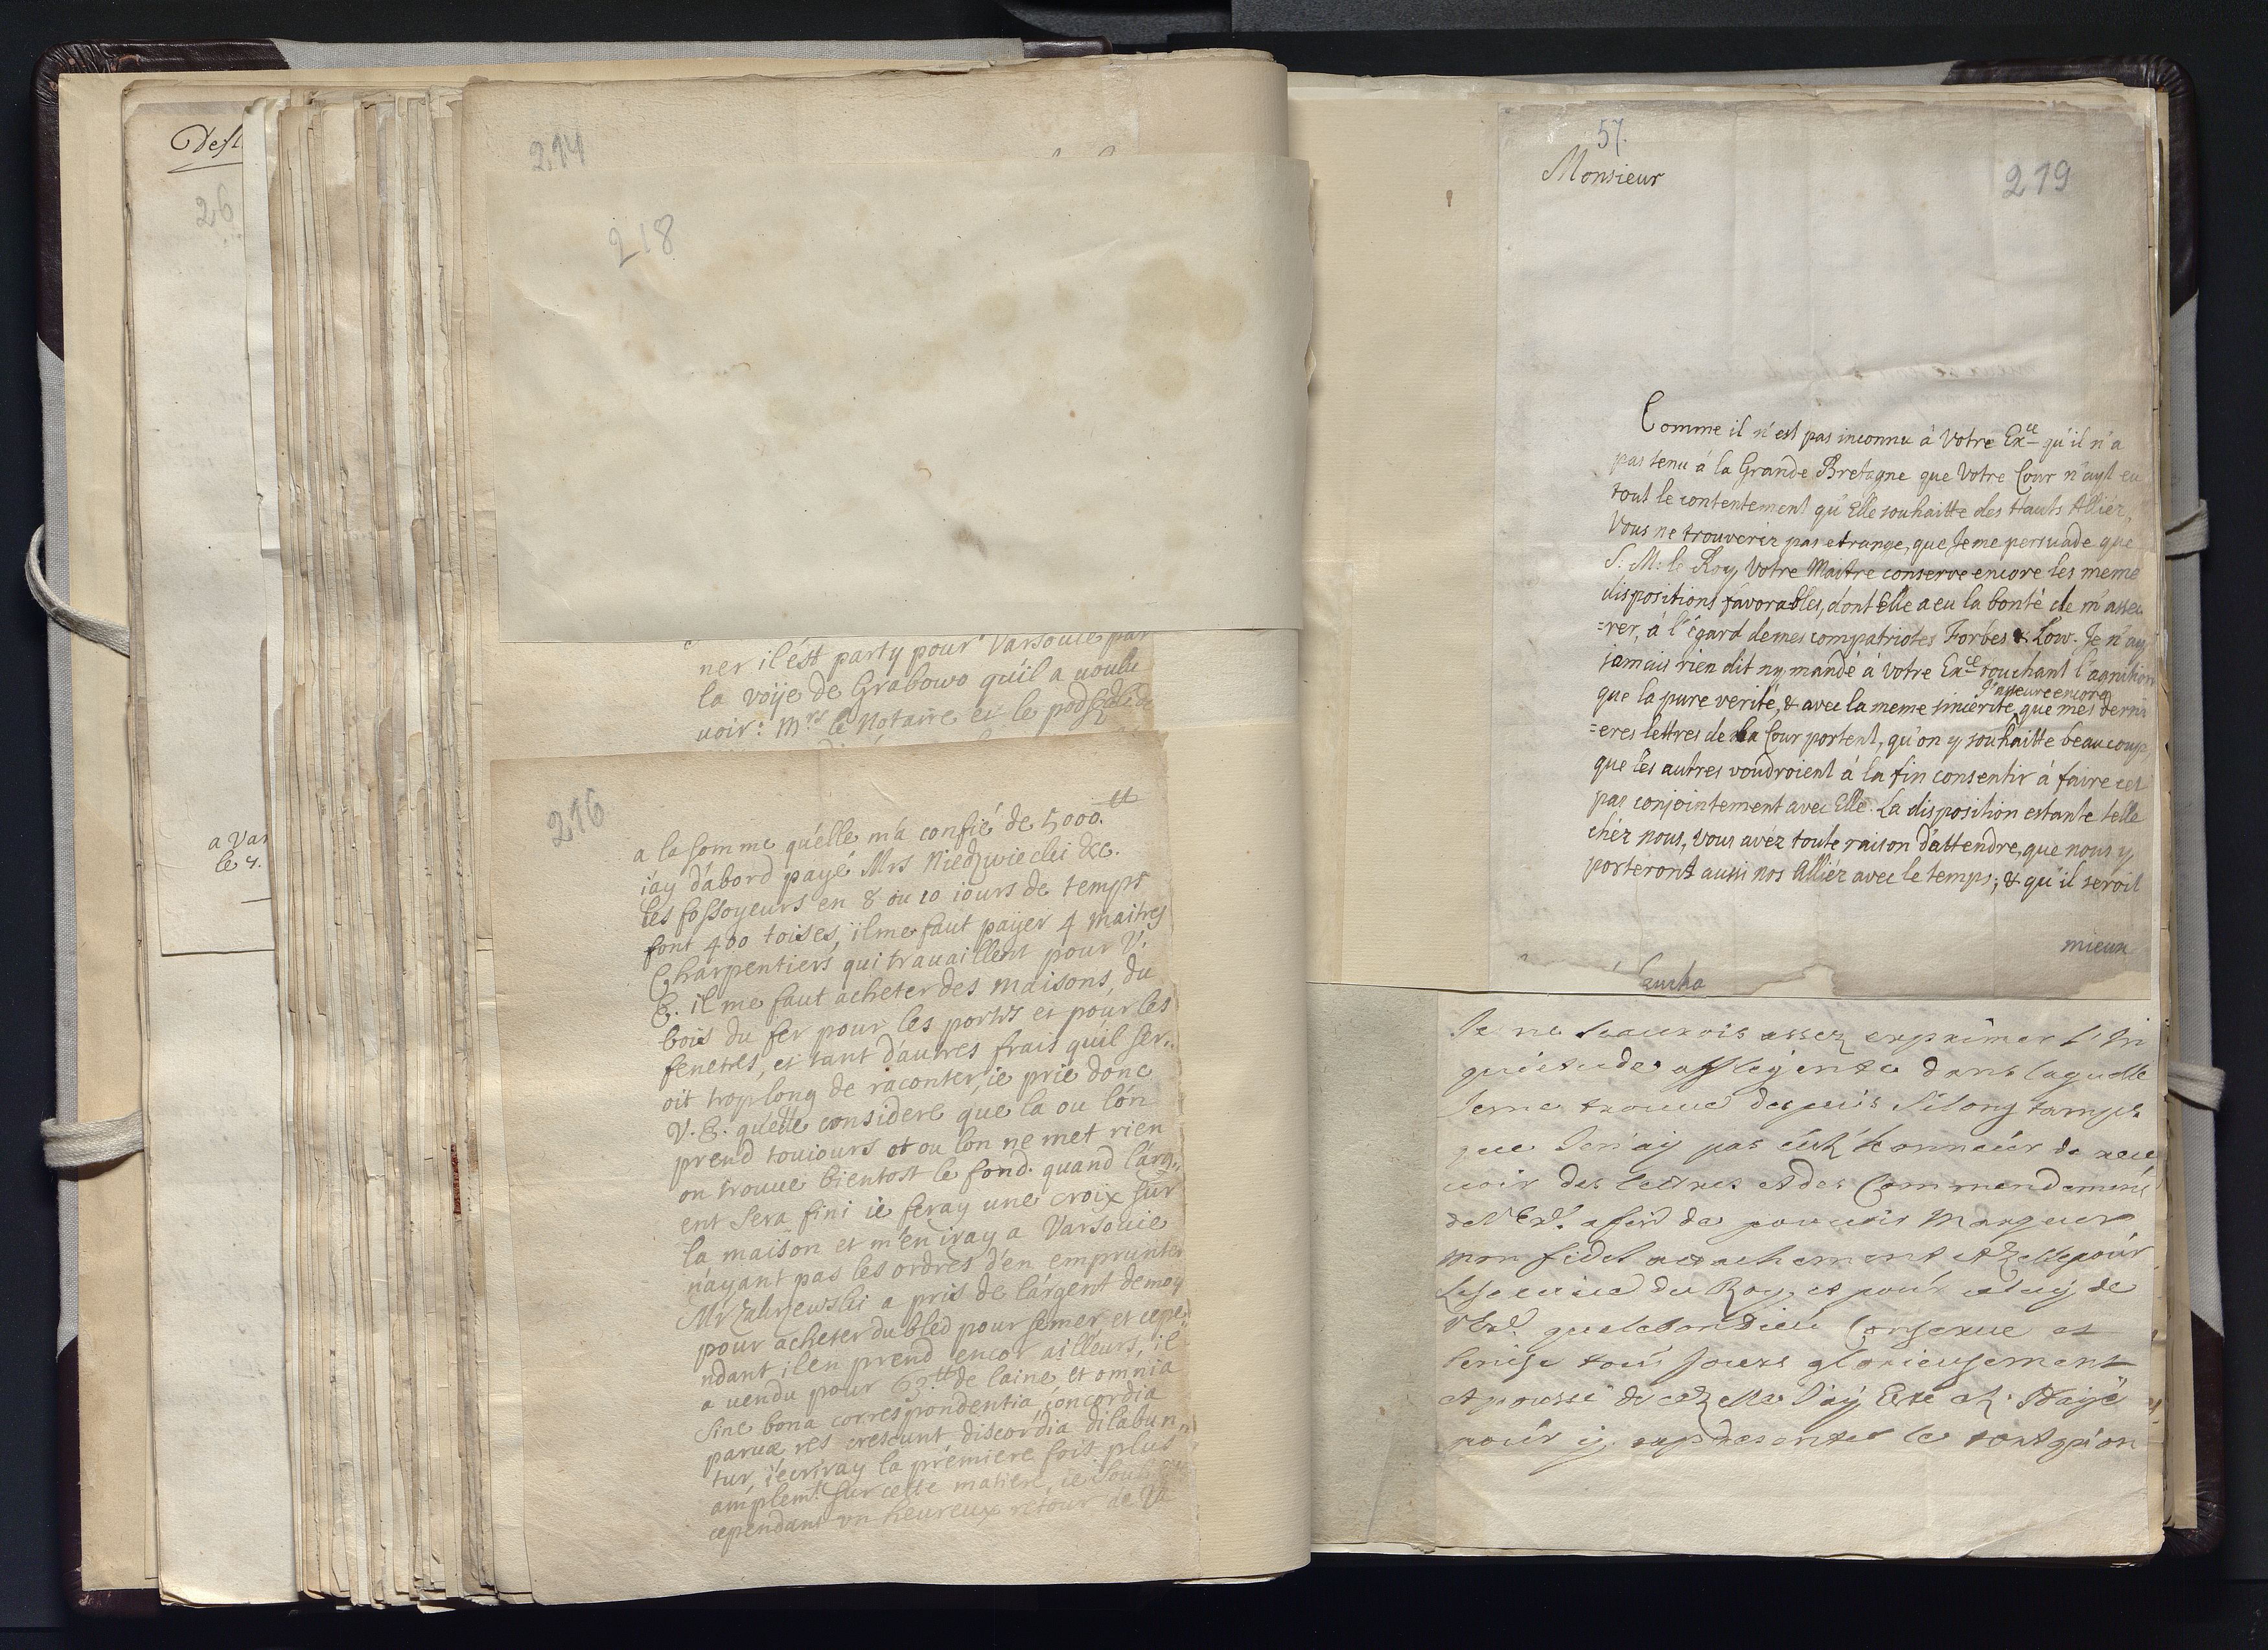 Dest
26
a Var
le 4.
214
218
ner il est party pour Varsovie par
la voÿe de Grabowo qu'il a voulu
uoir: Mrs le Notaire et le podsędek
216
a la somme quelle m'a confié de 5000.tt
i'ay d'abord payé Mrs Niedzwiecki &c.
les fossoyeurs en 8 ou 10 iours de temps
font 400 toises, il me faut paÿer 4 maitres
Charpentiers qui travaillent pour V.
E. il me faut acheter des maisons, du
bois du fer pour les portes et pour les
fenetres, et tant d'autres frais qu'il ser„
oit trop long de raconter, ie prie donc
V. E. quelle considere que la ou lón
prend touiours et ou lon ne met rien
on trouve bientost le fond. quand l'arg„
ent sera fini ie feray une croix sur
la maison et m'en iray a Varsovie
n'ayant pas les ordres d'en emprunter
Mr Zakrzewski a pris de l'argent de moy
pour acheter du bled pour semer et cepe„
ndant il en prend encor ailleurs, il
a uendu pour 63tt de laine et omnia
sine bona correspondentia, concordia
parvæ res crescunt discordia dilabun„
tur, i'ecriray la prémiere fois plus
amplemt. sur cette matiere, ie souh
cependant vn heureux retour de V
57.
Monsieur
219
Comme il n'est pas inconnu à Votre Exce qu'il n'a
pas tenu à la Grande Bretagne que Votre Cour n'ayt eu
tout le contentement qu'Elle souhaitte des Hauts Alliéz,
Vous ne trouveriz pas etrange, que Je me persuade que
S. M: le Roy, Votre Maitre conserve encore les meme
dispositions favorables, dont Elle a eu la bonté de m'asseu
=rer, à l'égard de mes compatriotes Forbes & Low. Je n'ay
jamais rien dit ny mandé à Votre Exce touchant l'agnition
que la pure verité, & avec la meme sincerité J'asseure encore que mes derni
=eres lettres de la Cour portent, qu'on y souhaitte beaucoup,
que les autres voudroient à la fin consentir à faire cet
pas conjointement avec Elle. La disposition estante telle
chéz nous, vous avéz toute raison d'attendre, que nous y
porteront aussi nos Alliéz avec le temps; & qu'il seroit
mieux
Je ne scaurois assez exprimer l'In
quietude affligente dans laquelle
Je me trouve depuis si long temps
que Je n'ay pas eu l'honneur de rece
uoir des lettres et des Commendemens
de V Exl. afin de pouvoir Marquer
mon fidel attachement et zelle pour
le service du Roy, et pour celuy de
V Exl. que le bon Dieu Conserve et
benise tous Jours glorieusement
et poussé de ce zelle J'ay Esté
pour y representer le